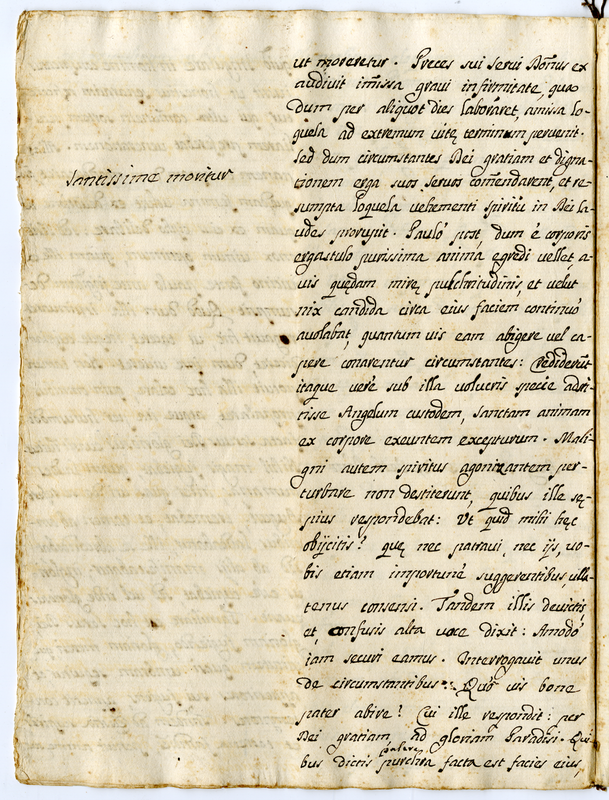 Santissime moritur
ut moreretur. Preces sui servi Dominus ex
audivit im̃issa gravi infirmitate, qua
dum per aliquot dies laboraret, amissa lo-
quela ad extremum vitę terminum pervenit.
Sed dum circumstantes Dei gratiam et digna-
tionem erga suos servos com̃endarent, et re-
sumpta loquela vehementi spiritu in Dei la-
udes prorupit. Paulò post, dum è corporis
ergastulo purissima anima egredi vellet, a-
vis quędam mirę pulchritudinis, et velut
nix candida circa eius faciem continuò
avolabat, quantum vis eam abigere vel ca-
pere conarentur circumstantes: Crediderũt
itaque verè sub illa volucris specie adsti-
tisse Angelum custodem, sanctam animam
ex corpore exeuntem excepturum. Mali-
gni autem spiritus agonizantem per-
turbare non destiterunt, quibus ille sę-
pius respondebat: Ut quid mihi hęc
obijcitis? quę nec patravi, nec ijs, vo-
bis etiam importunè suggerentibus ulla-
tenus consensi. Tandem illis devictis
et confusis alta voce dixit: Amodò
iam securi eamus. Interrogavit unus
de circumstantibus: Quò vis bone
pater abire? Cui ille respondit: per
Dei gratiam, ad gloriam Paradisi. Qui
bus dictis pulchra facta est facies eius,